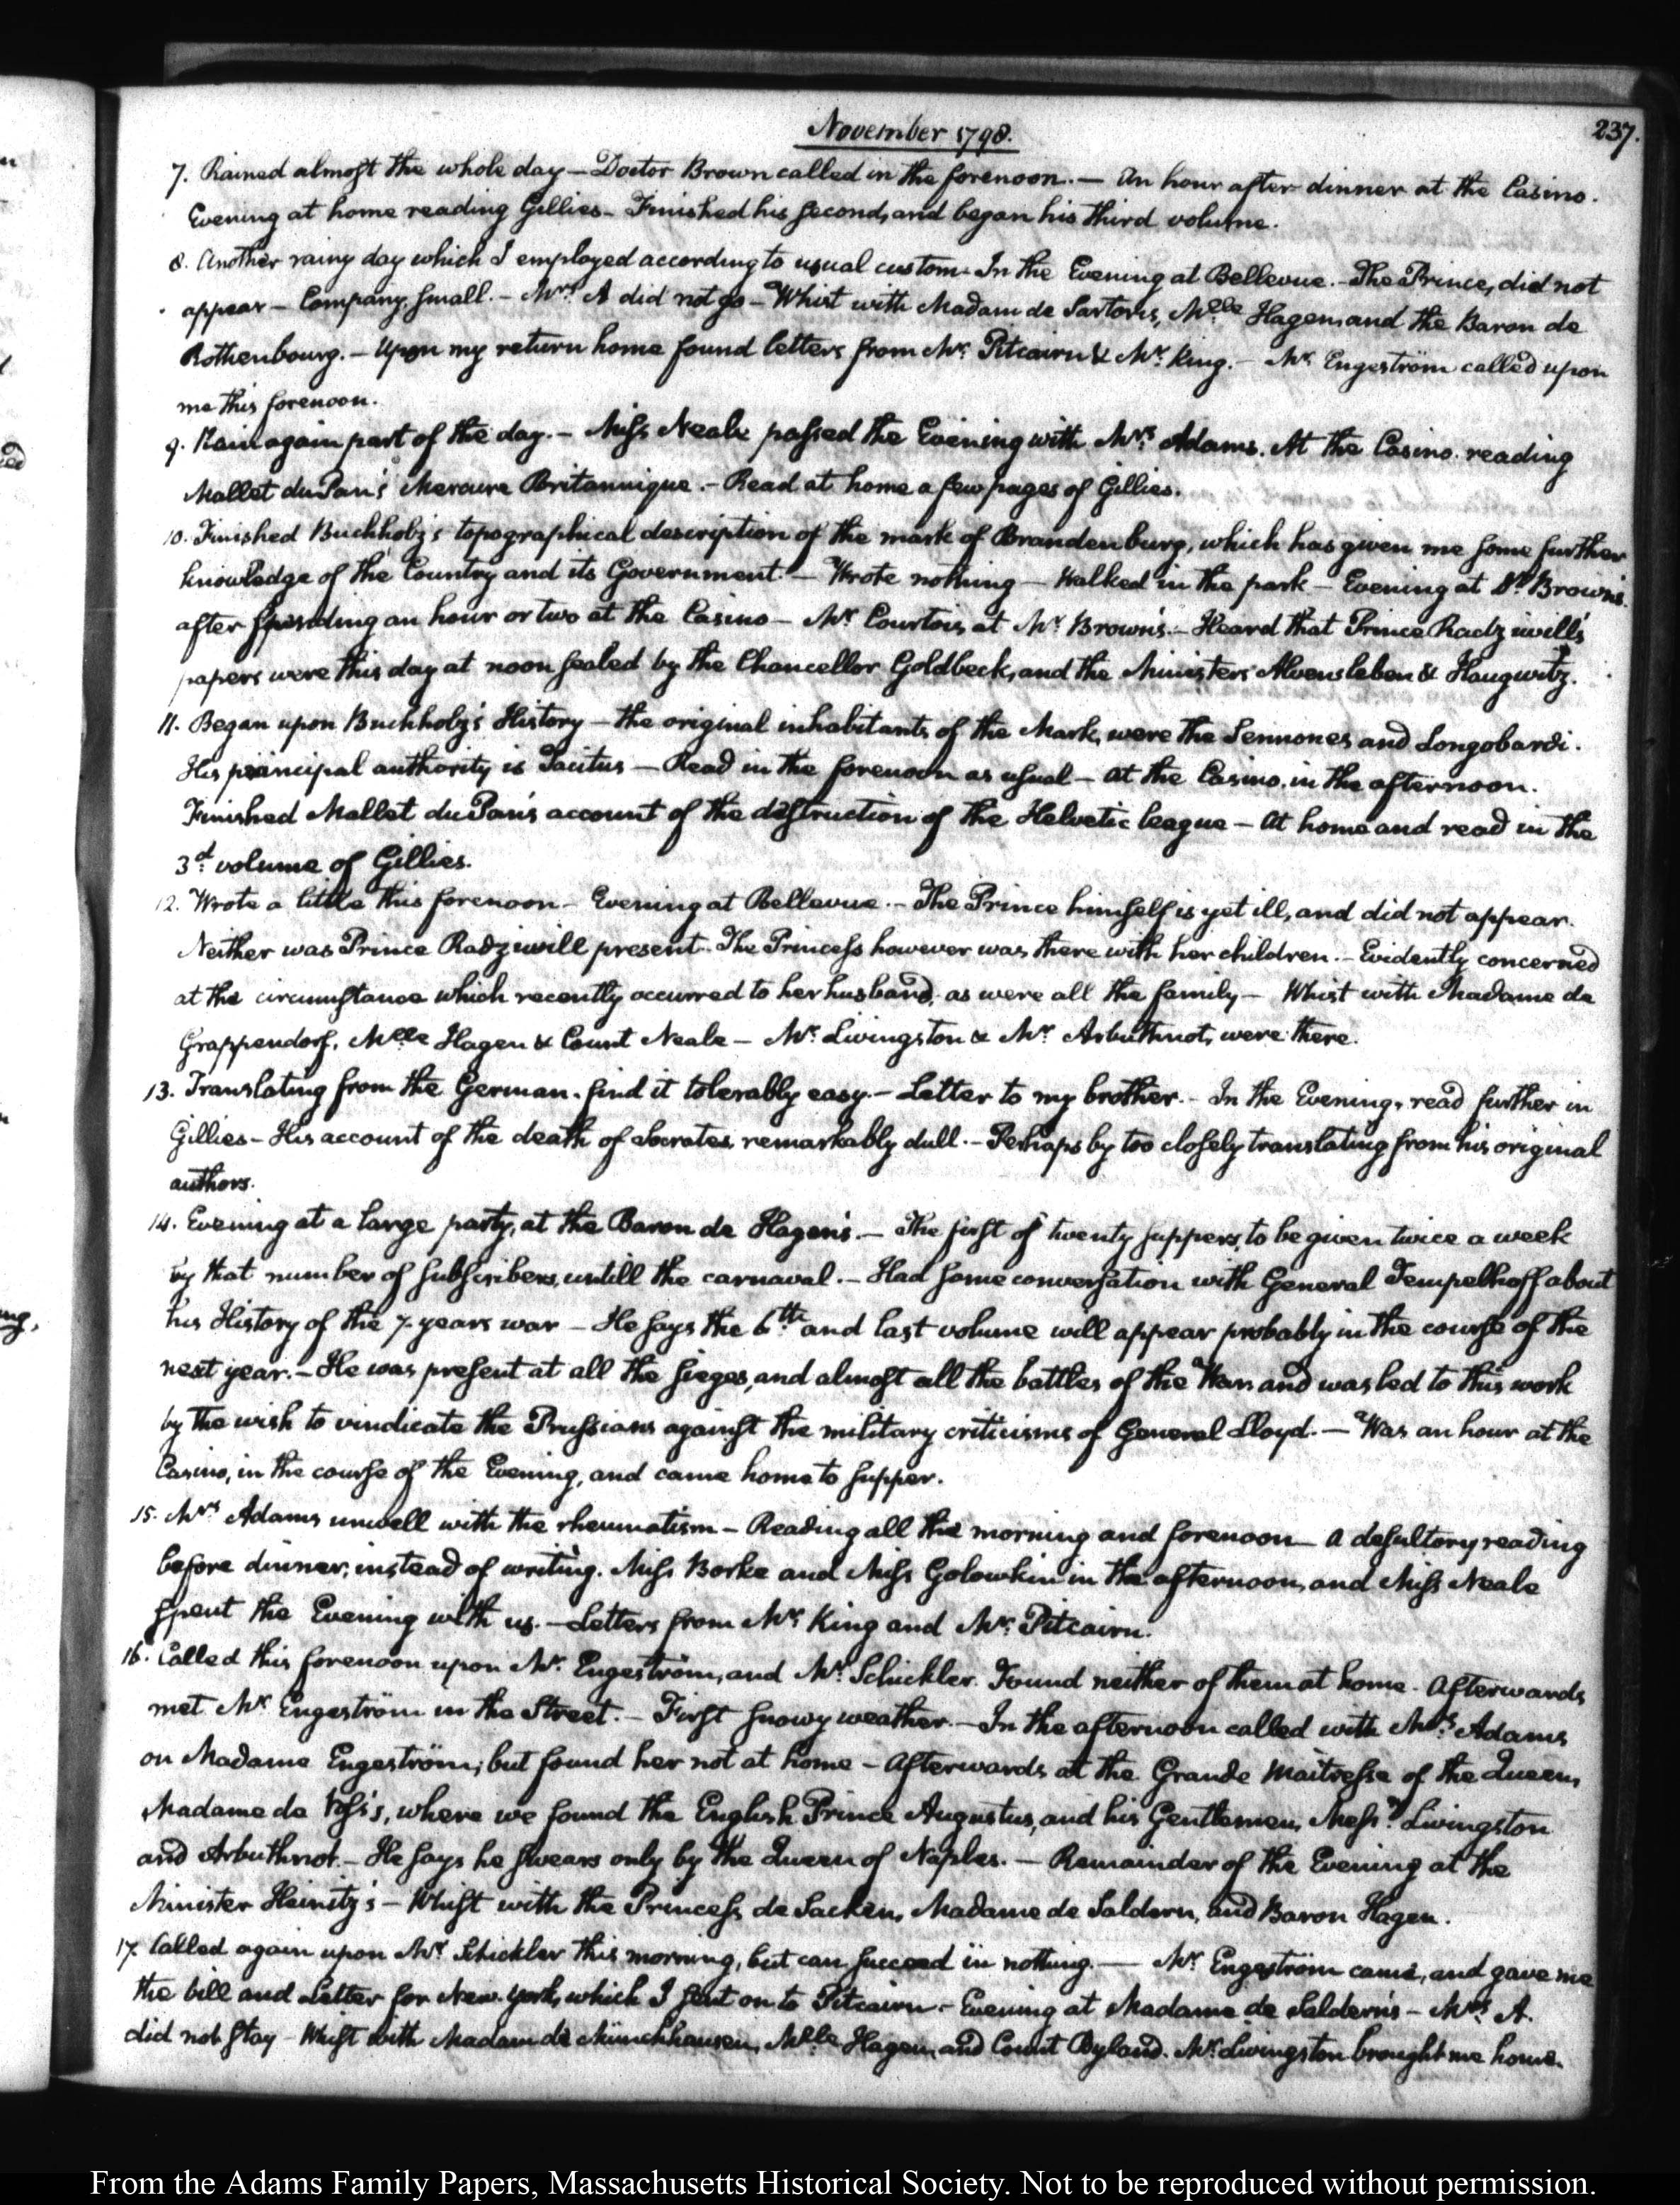 November 1798.
237.
7. Rained almost the whole day — Doctor Brown called in the forenoon. — An hour after dinner at the Casino.
Evening at home reading Gillies — Finished his second, and began his third volume.
8. Another rainy day which I employed according to usual custom. In the Evening at Bellevue. — The Prince, did not
appear — Company small. — Mrs. A did not go — Whist with Madam de Sartoris, Melle Hagen, and the Baron de
Rothenbourg. — Upon my return home found letters from Mr. Pitcairn & Mr. King. — Mr. Engeström called upon
me this forenoon.
9. Rain again part of the day. — Miss Neale passed the Evening with Mrs. Adams. At the Casino. reading
Mallet du Pan's Mercure Britannique. — Read at home a few pages of Gillies.
10. Finished Buchholz's topographical description of the mark of Brandenburg, which has given me some further
knowledge of the Country and its Government. — Wrote nothing — Walked in the park — Evening at Dr. Brown's.
after spending an hour or two at the Casino — Mr. Courtois, at Mr. Brown's. — Heard that Prince Radziwill's
papers were this day at noon sealed by the Chancellor Goldbeck, and the Ministers Alvensleben & Haugwitz.
11. Began upon Buchholz's History — the original inhabitants of the Mark, were the Sennones and Longobardi.
His principal authority is Tacitus — Read in the forenoon as usual — At the Casino in the afternoon.
Finished Mallet du Pan's account of the destruction of the Helvetic league — At home and read in the
3d. volume of Gillies.
12. Wrote a little this forenoon — Evening at Bellevue. — The Prince himself is yet ill, and did not appear.
Neither was Prince Radziwill present. The Princess however was there with her children. — Evidently concerned
at the circumstance which recently occurred to her husband, as were all the family — Whist with Madame de
Grappendorf, Melle Hagen & Count Neale — Mr. Livingston & Mr. Arbuthnot, were there.
13. Translating from the German. find it tolerably easy — Letter to my brother. — In the Evening, read further in
Gillies — His account of the death of Socrates, remarkably dull. — Perhaps by too closely translating from his original
authors.
14. Evening at a large party, at the Baron de Hagen's. — The first of twenty suppers, to be given twice a week
by that number of subscribers, untill the carnaval. — Had some conversation with General Tempelhoff about
his History of the 7. years war — He says the 6th. and last volume will appear probably in the course of the
next year. — He was present at all the sieges, and almost all the battles of the War, and was led to this work
by the wish to vindicate the Prussians against the military criticisms of General Lloyd. — Was an hour at the
Casino, in the course of the Evening, and came home to supper.
15. Mrs. Adams unwell with the rheumatism — Reading all the morning and forenoon — A desultory reading
before dinner, instead of writing. Miss Borke and Miss Golowkin in the afternoon, and Miss Neale
spent the Evening with us. — Letters from Mr. King and Mr. Pitcairn.
16. Called this forenoon upon Mr. Engeström, and Mr. Schickler. Found neither of them at home. Afterwards
met Mr. Engeström in the Street. — First snowy weather. — In the afternoon called with Mrs. Adams
on Madame Engeström; but found her not at home — Afterwards at the Grande Maitresse of the Queen,
Madame de Voss's, where we found the English Prince Augustus, and his Gentlemen, Messrs. Livingston
and Arbuthnot. — He says he swears only by the Queen of Naples. — Remainder of the Evening at the
Minister Heinitz's — Whist with the Princess de Sacken, Madame de Saldern, and Baron Hagen.
17. Called again upon Mr. Schickler this morning, but can succeed in nothing. — Mr. Engeström came, and gave me
the bill and Letter for New-York, which I sent on to Pitcairn — Evening at Madame de Saldern's — Mrs. A.
did not stay — Whist with Madam de Münchhausen, Melle Hagen, and Count Byland. Mr. Livingston brought me home.
From the Adams Family Papers, Massachusetts Historical Society. Not to be reproduced without permission.